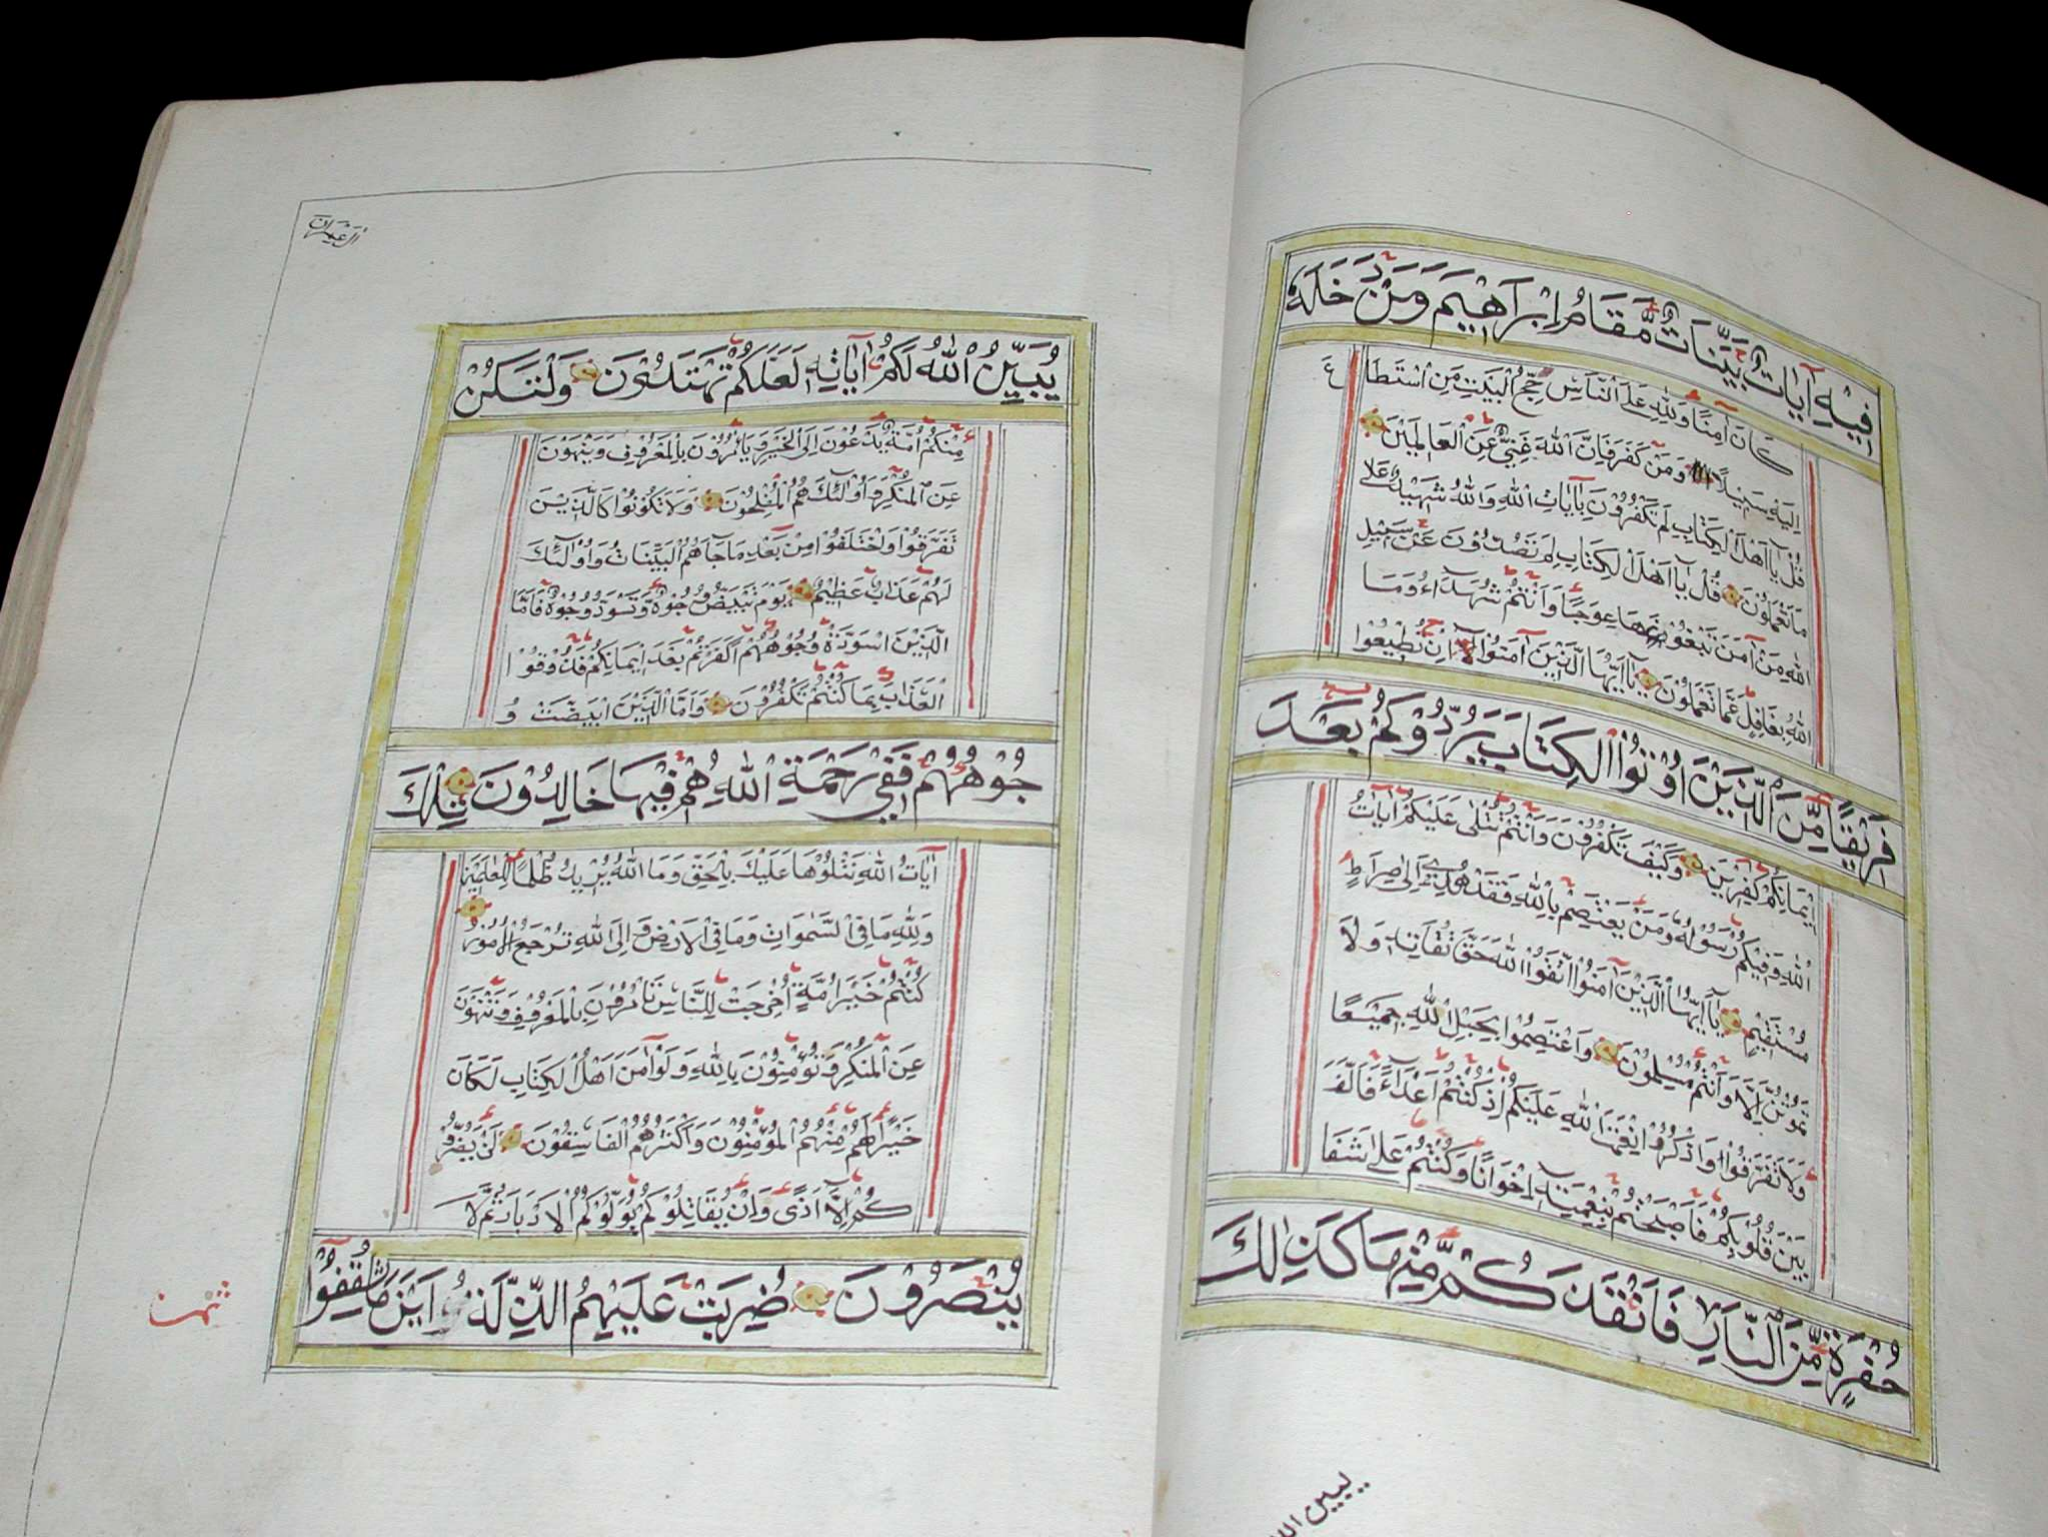 فِيْهِ اٰيَاتٌ بَيِّنَاتٌ مَّقَامُ اِبْرَاهِيْمَ وَمَنْ دَخَلَهُ
كَانَ اٰمِنًا وَلِلّٰهِ عَلَى النَّاسِ حِجُّ الْبَيْتِ مَنِ اسْتَطَا
ع
اِلَيْهِ سَبِيْلًا وَمَنْ كَفَرَ فَاِنَّ اللّٰهَ غَنِيٌّ عَنِ الْعَالَمِيْنَ
قُلْ يَا اَهْلَ الْكِتَابِ لِمَ تَكْفُرُوْنَ بِاٰيَاتِ اللّٰهِ وَاللّٰهُ شَهِيْدٌ عَلٰى
مَا تَعْمَلُوْنَ قُلْ يَا اَهْلَ الْكِتَابِ لِمَ تَصُدُّوْنَ عَنْ سَبِيْلِ
اللّٰهِ مَنْ اٰمَنَ تَبْغُوْنَهَا عِوَجًا وَاَنْتُمْ شُهَدَاءُ وَمَا
اللّٰهُ بِغَافِلٍ عَمَّا تَعْمَلُوْنَ يَا اَيُّهَا الَّذِيْنَ اٰمَنُوْا اِنْ تُطِيْعُوْا
فَرِيْقًا مِّنَ الَّذِيْنَ اُوْتُوا الْكِتَابَ يَرُدُّوْكُمْ بَعْدَ
اِيْمَانِكُمْ كٰفِرِيْنَ وَكَيْفَ تَكْفُرُوْنَ وَاَنْتُمْ تُتْلٰى عَلَيْكُمْ اٰيَاتُ
اللّٰهِ وَفِيْكُمْ رَسُوْلُهُ وَمَنْ يَعْتَصِمْ بِاللّٰهِ فَقَدْ هُدِيَ اِلٰى صِرَاطٍ
مُسْتَقِيْمٍ يَا اَيُّهَا الَّذِيْنَ اٰمَنُوا اتَّقُوا اللّٰهَ حَقَّ تُقَاتِهِ وَلَا
تَمُوْتُنَّ اِلَّا وَاَنْتُمْ مُسْلِمُوْنَ وَاعْتَصِمُوْا بِحَبْلِ اللّٰهِ جَمِيْعًا
وَلَا تَفَرَّقُوْا وَاذْكُرُوْا نِعْمَةَ اللّٰهِ عَلَيْكُمْ اِذْ كُنْتُمْ اَعْدَاءً فَاَلَّفَ
بَيْنَ قُلُوْبِكُمْ فَاَصْبَحْتُمْ بِنِعْمَتِهِ اِخْوَانًا وَكُنْتُمْ عَلٰى شَفَا
حُفْرَةٍ مِّنَ النَّارِ فَاَنْقَذَكُمْ مِّنْهَا كَذٰلِكَ
يبين الله
اٰل عِمْرَان
يُبَيِّنُ اللّٰهُ لَكُمْ اٰيَاتِهِ لَعَلَّكُمْ تَهْتَدُوْنَ وَلْتَكُنْ
مِنْكُمْ اُمَّةٌ يَدْعُوْنَ اِلَى الْخَيْرِ وَيَأْمُرُوْنَ بِالْمَعْرُوْفِ وَيَنْهَوْنَ
عَنِ الْمُنْكَرِ وَاُولٰئِكَ هُمُ الْمُفْلِحُوْنَ وَلَا تَكُوْنُوْا كَالَّذِيْنَ
تَفَرَّقُوْا وَاخْتَلَفُوْا مِنْ بَعْدِ مَا جَاءَهُمُ الْبَيِّنَاتُ وَاُولٰئِكَ
لَهُمْ عَذَابٌ عَظِيْمٌ يَوْمَ تَبْيَضُّ وُجُوْهٌ وَتَسْوَدُّ وُجُوْهٌ فَاَمَّا
الَّذِيْنَ اسْوَدَّتْ وُجُوْهُهُمْ اَكَفَرْتُمْ بَعْدَ اِيْمَانِكُمْ فَذُوْقُوا
الْعَذَابَ بِمَا كُنْتُمْ تَكْفُرُوْنَ وَاَمَّا الَّذِيْنَ ابْيَضَّتْ وُ
جُوْهُهُمْ فَفِيْ رَحْمَةِ اللّٰهِ هُمْ فِيْهَا خَالِدُوْنَ تِلْكَ
اٰيَاتُ اللّٰهِ نَتْلُوْهَا عَلَيْكَ بِالْحَقِّ وَمَا اللّٰهُ يُرِيْدُ ظُلْمًا لِلْعٰلَمِيْنَ
وَلِلّٰهِ مَا فِي السَّمٰوَاتِ وَمَا فِي الْاَرْضِ وَاِلَى اللّٰهِ تُرْجَعُ الْاُمُوْرُ
كُنْتُمْ خَيْرَ اُمَّةٍ اُخْرِجَتْ لِلنَّاسِ تَأْمُرُوْنَ بِالْمَعْرُوْفِ وَتَنْهَوْنَ
عَنِ الْمُنْكَرِ وَتُؤْمِنُوْنَ بِاللّٰهِ وَلَوْ اٰمَنَ اَهْلُ الْكِتَابِ لَكَانَ
خَيْرًا لَهُمْ مِنْهُمُ الْمُؤْمِنُوْنَ وَاَكْثَرُهُمُ الْفَاسِقُوْنَ لَنْ يَضُرُّوْ
كُمْ اِلَّا اَذًى وَاِنْ يُقَاتِلُوْكُمْ يُوَلُّوْكُمُ الْاَدْبَارَ ثُمَّ لَا
يُنْصَرُوْنَ ضُرِبَتْ عَلَيْهِمُ الذِّلَّةُ اَيْنَ مَا ثُقِفُوْا
ثمن